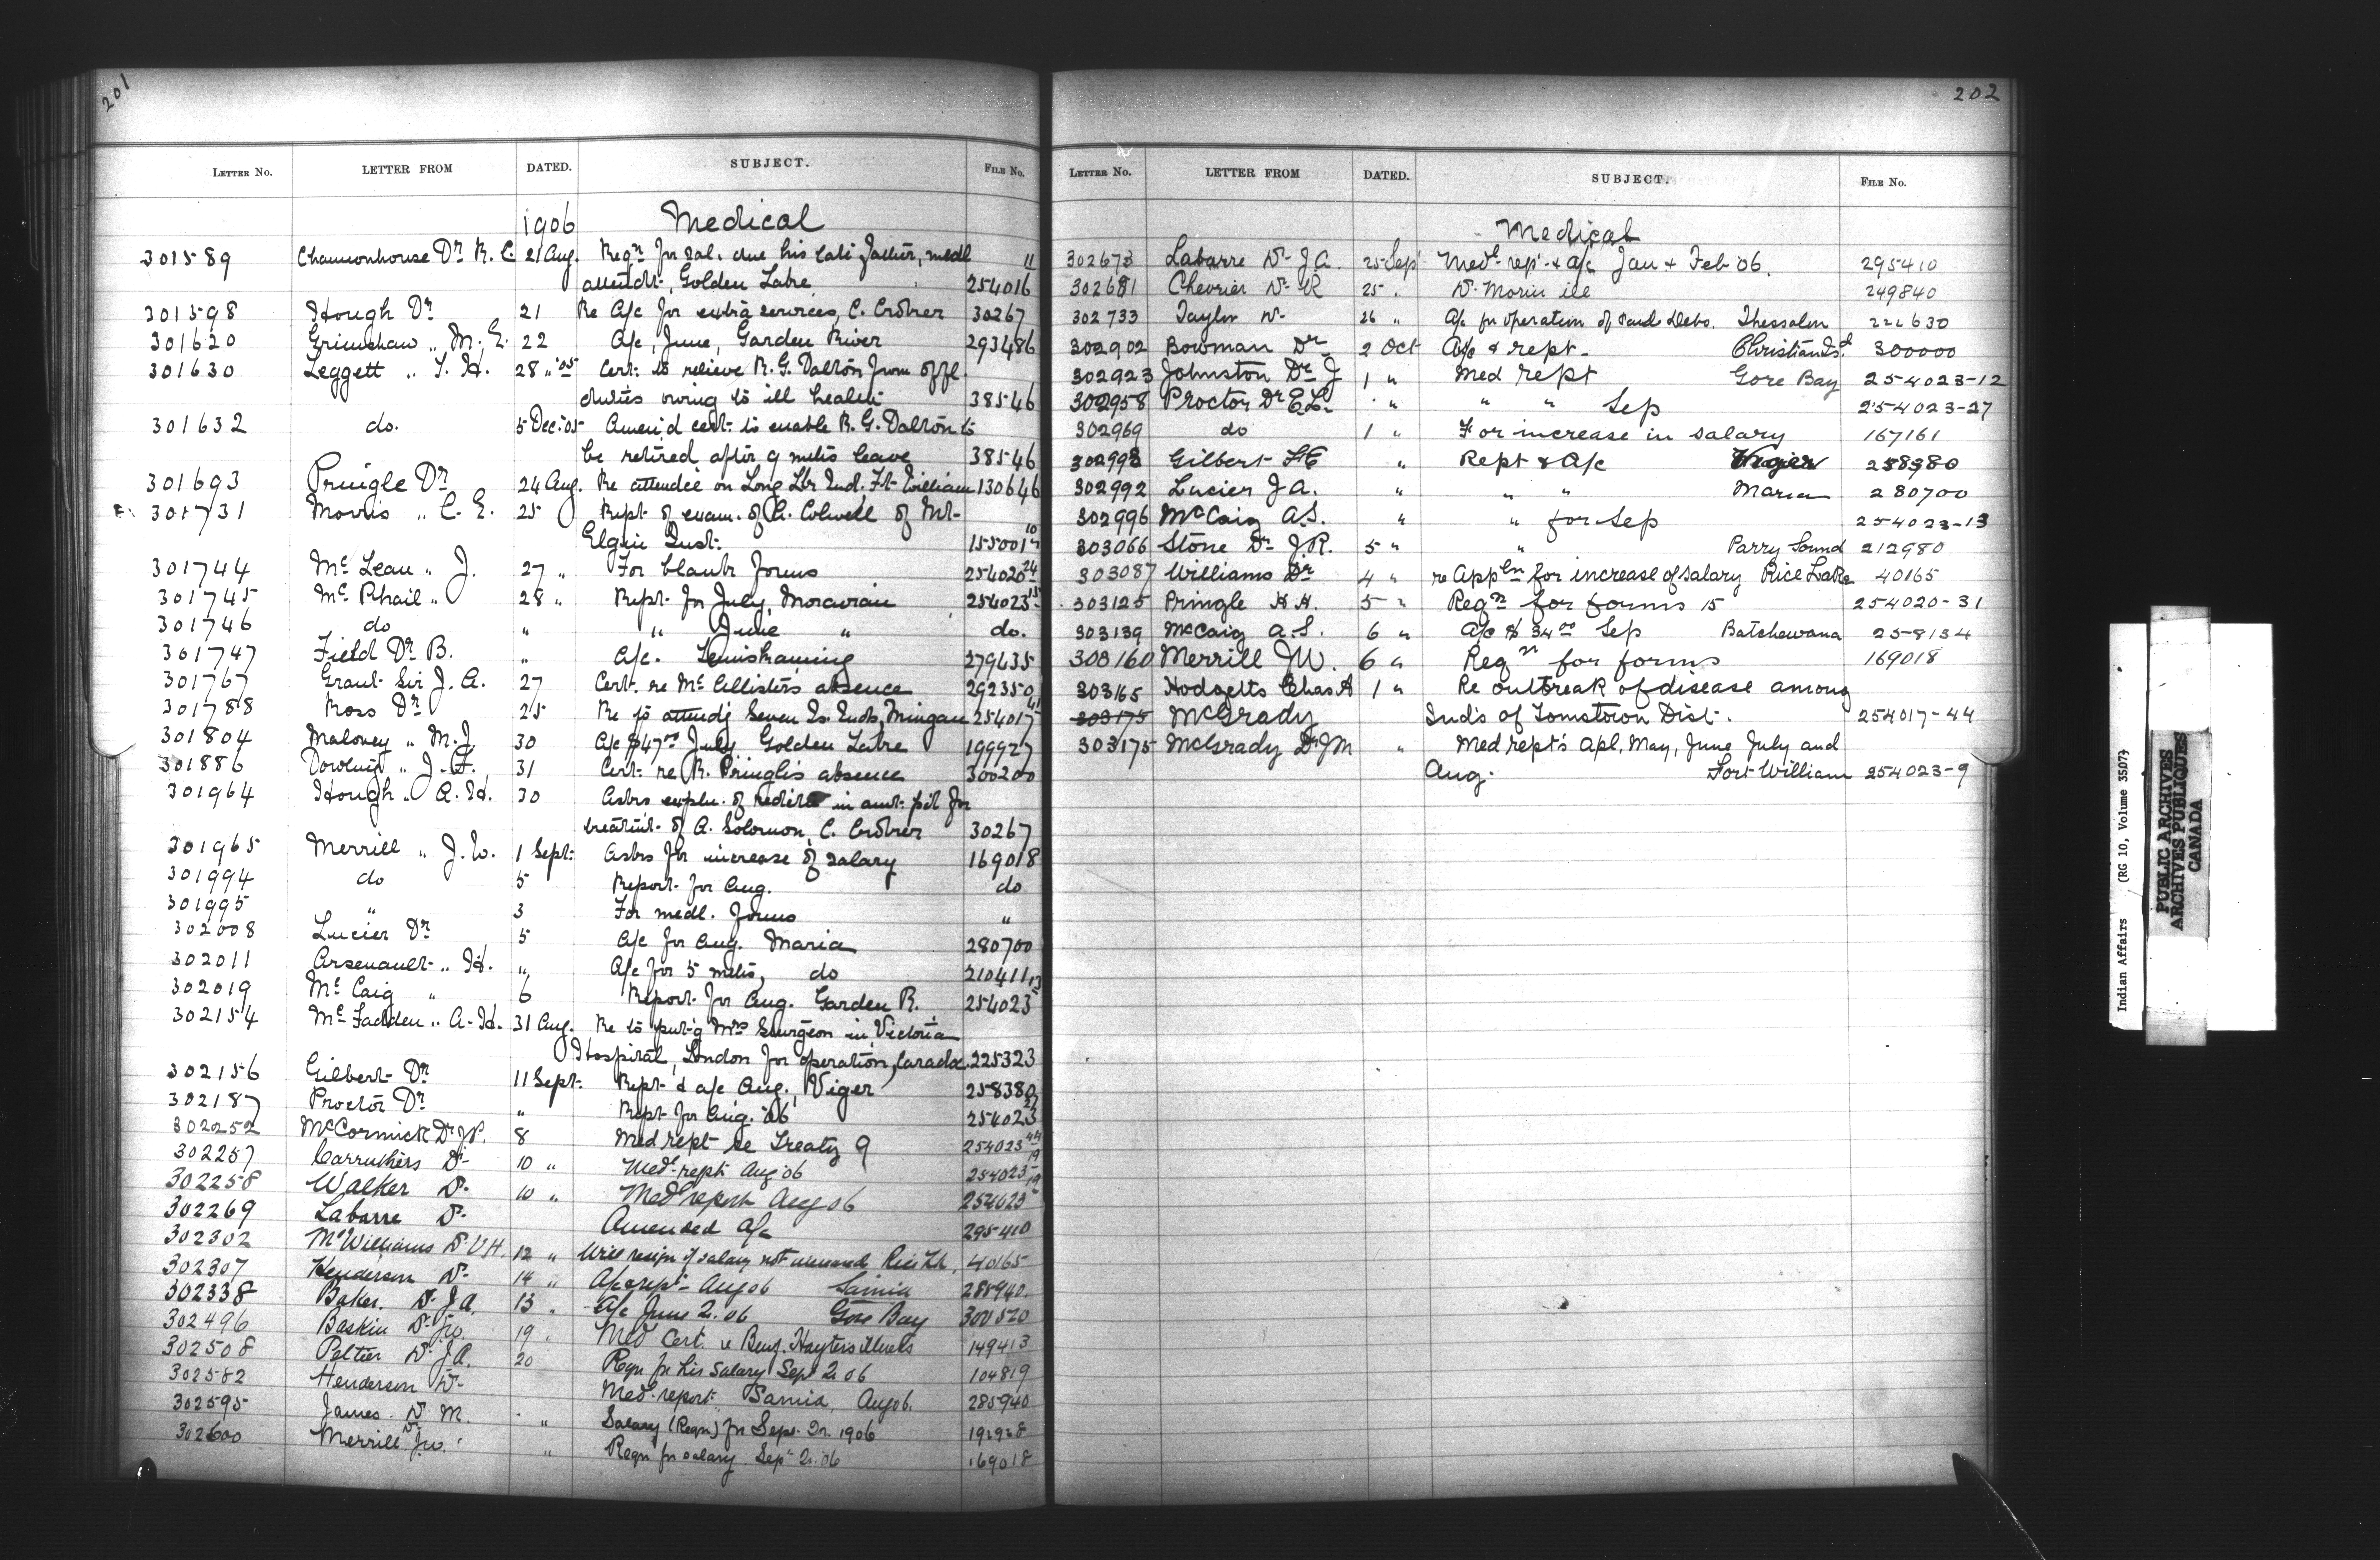 201
LETTER No. LETTER FROM DATED. SUBJECT. FILE No.
1906 Medical
301589 Chamonhouse Dr. R. C. 21 Aug. Reqn for sal. due his late father, medl
attendt, Golden Lake 254016 11
301598 Hough Dr 21 Re A/c for extra services, C. Croker 30267
301620 Grimshaw " M. E. 22 A/c, June, Garden River 293486
301630 Leggett " T. H. 28 " '05 Cert: to relieve R. G. Dalton from offl
duties owing to ill health 38546
301632 do. 5 Dec: 05 Amend cert: to enable R. G. Dalton to
be retired after 9 mths leave 38546
301693 Pringle Dr 24 Aug. Re attendce on Long Lke Ind. Ft William 130646
301731 Morris " C. E. 25 Rept of exam. of A. Colwell of Mt-
Elgin Inst: 155001
301744 Mc Lean " J. 27 " For blank forms 254020 24
301745 Mc Phail " 28 " Rept. for July, Moravian 254023 15
301746 do " " June " do.
301747 Field Dr B. " A/c. Temiskaming 279435
301767 Grant Sir J. A. 27 Cert. re Mc Allister's absence 292350
301788 Ross Dr 25 Re to attendg Seven Is. Inds, Mingan 254017 41
301804 Maloney " M. J. 30 A/c $47.00 July Golden Lake 199927
301886 Dowling " J. F. 31 Cert: re R. Pringle's absence 300200
301964 Hough " A. H. 30 Asks expln. of reditn in amt. pd for
treatmt. of A. Solomon, C. Croker 30267
301965 Merrill " J. W. 1 Sept: Asks for increase of salary 169018
301994 do 5 Report for Aug. do
301995 " 3 For medl. forms "
302008 Lucier Dr 5 A/c for Aug. Maria 280700
302011 Arsenault " H. " A/c for 5 mths, do 210411
302019 Mc Caig " 6 Report for Aug. Garden R. 254023 13
302154 Mc Fadden " A. H. 31 Aug. Re to putg Mrs Sturgeon in Victoria
Hospital, London for operation, Carada. 225323
302156 Gilbert Dr 11 Sept. Rept & a/c Aug., Viger 258380
302187 Proctor Dr " Rept for Aug. '06 254023 27
302252 McCormick Dr J P. 8 Med rept re Treaty 9 254023 44
302257 Carruthers Dr 10 " Medl rept Aug 06 254023 19
302258 Walker Dr. 10 " Medl report Aug 06 254023 19
302269 Labarre Dr. Amended a/c 295410
302302 McWilliams Dr. V H. 12 " Will resign if salary not increased Rice Lk. 40165
302307 Henderson Dr 14 " A/c & rept- Aug 06 Sarnia 285940.
302338 Baker. Dr J A. 13 " A/c June 2. 06 Gore Bay 300520
302496 Baskin Dr Jo. 19 " Med Cert. re Benj. Hayter's illness 149413
302508 Peltier Dr J A. 20 Reqn for his salary Sept 2. 06 104819
302582 Henderson Dr Med. report. Sarnia, Aug 06. 285940
302595 James. Dr M. " Salary (Reqn) for Sept. Qr. 1906 192928
302600 Merrill Dr J W. " Reqn for salary Sep 2. 06 169018
202
LETTER No. LETTER FROM DATED. SUBJECT. FILE No.
Medical
302673 Labarre Dr J. A. 25 Sep Medl rept & a/c Jan & Feb 06. 295410
302681 Chevrier Dr R 25 " Dr. Morin ill 249840
302733 Taylor Dr 26 " A/c for operation of Debo. Thessalon 222630
302902 Bowman Dr 2 Oct A/c & rept- Christian Isd 300000
302923 Johnston Dr J 1 " Med rept Gore Bay 254023-12
302958 Proctor Dr E L. " " " Sep 254023-27
302969 do 1 " For increase in salary 167161
302993 Gilbert F E " Rept & A/c Viger 258380
302992 Lucier J A. " " " Maria 280700
302996 McCaig A. S. " " for Sep 254023-13
303066 Stone Dr J. R. 5 " " Parry Sound 212980
303087 Williams Dr 4 " re Appln for increase of salary Rice Lake 40165
303125 Pringle H. H. 5 " Reqn for forms 15 254020-31
303139 McCaig A. S. 6 " A/c $ 34.00 Sep Batchewana 258134
303160 Merrill J W. 6 " Reqn for forms 169018
303165 Hodgetts Chas A 1 " Re outbreak of disease among
303175 McGrady Ind's of Tomstown Dist. 254017-44
303175 McGrady Dr J M " Med rept's Apl, May, June July and
Aug. Fort William 254023-9
Indian Affairs (RG 10, Volume 3507)
PUBLIC ARCHIVES
ARCHIVES PUBLIQUES
CANADA